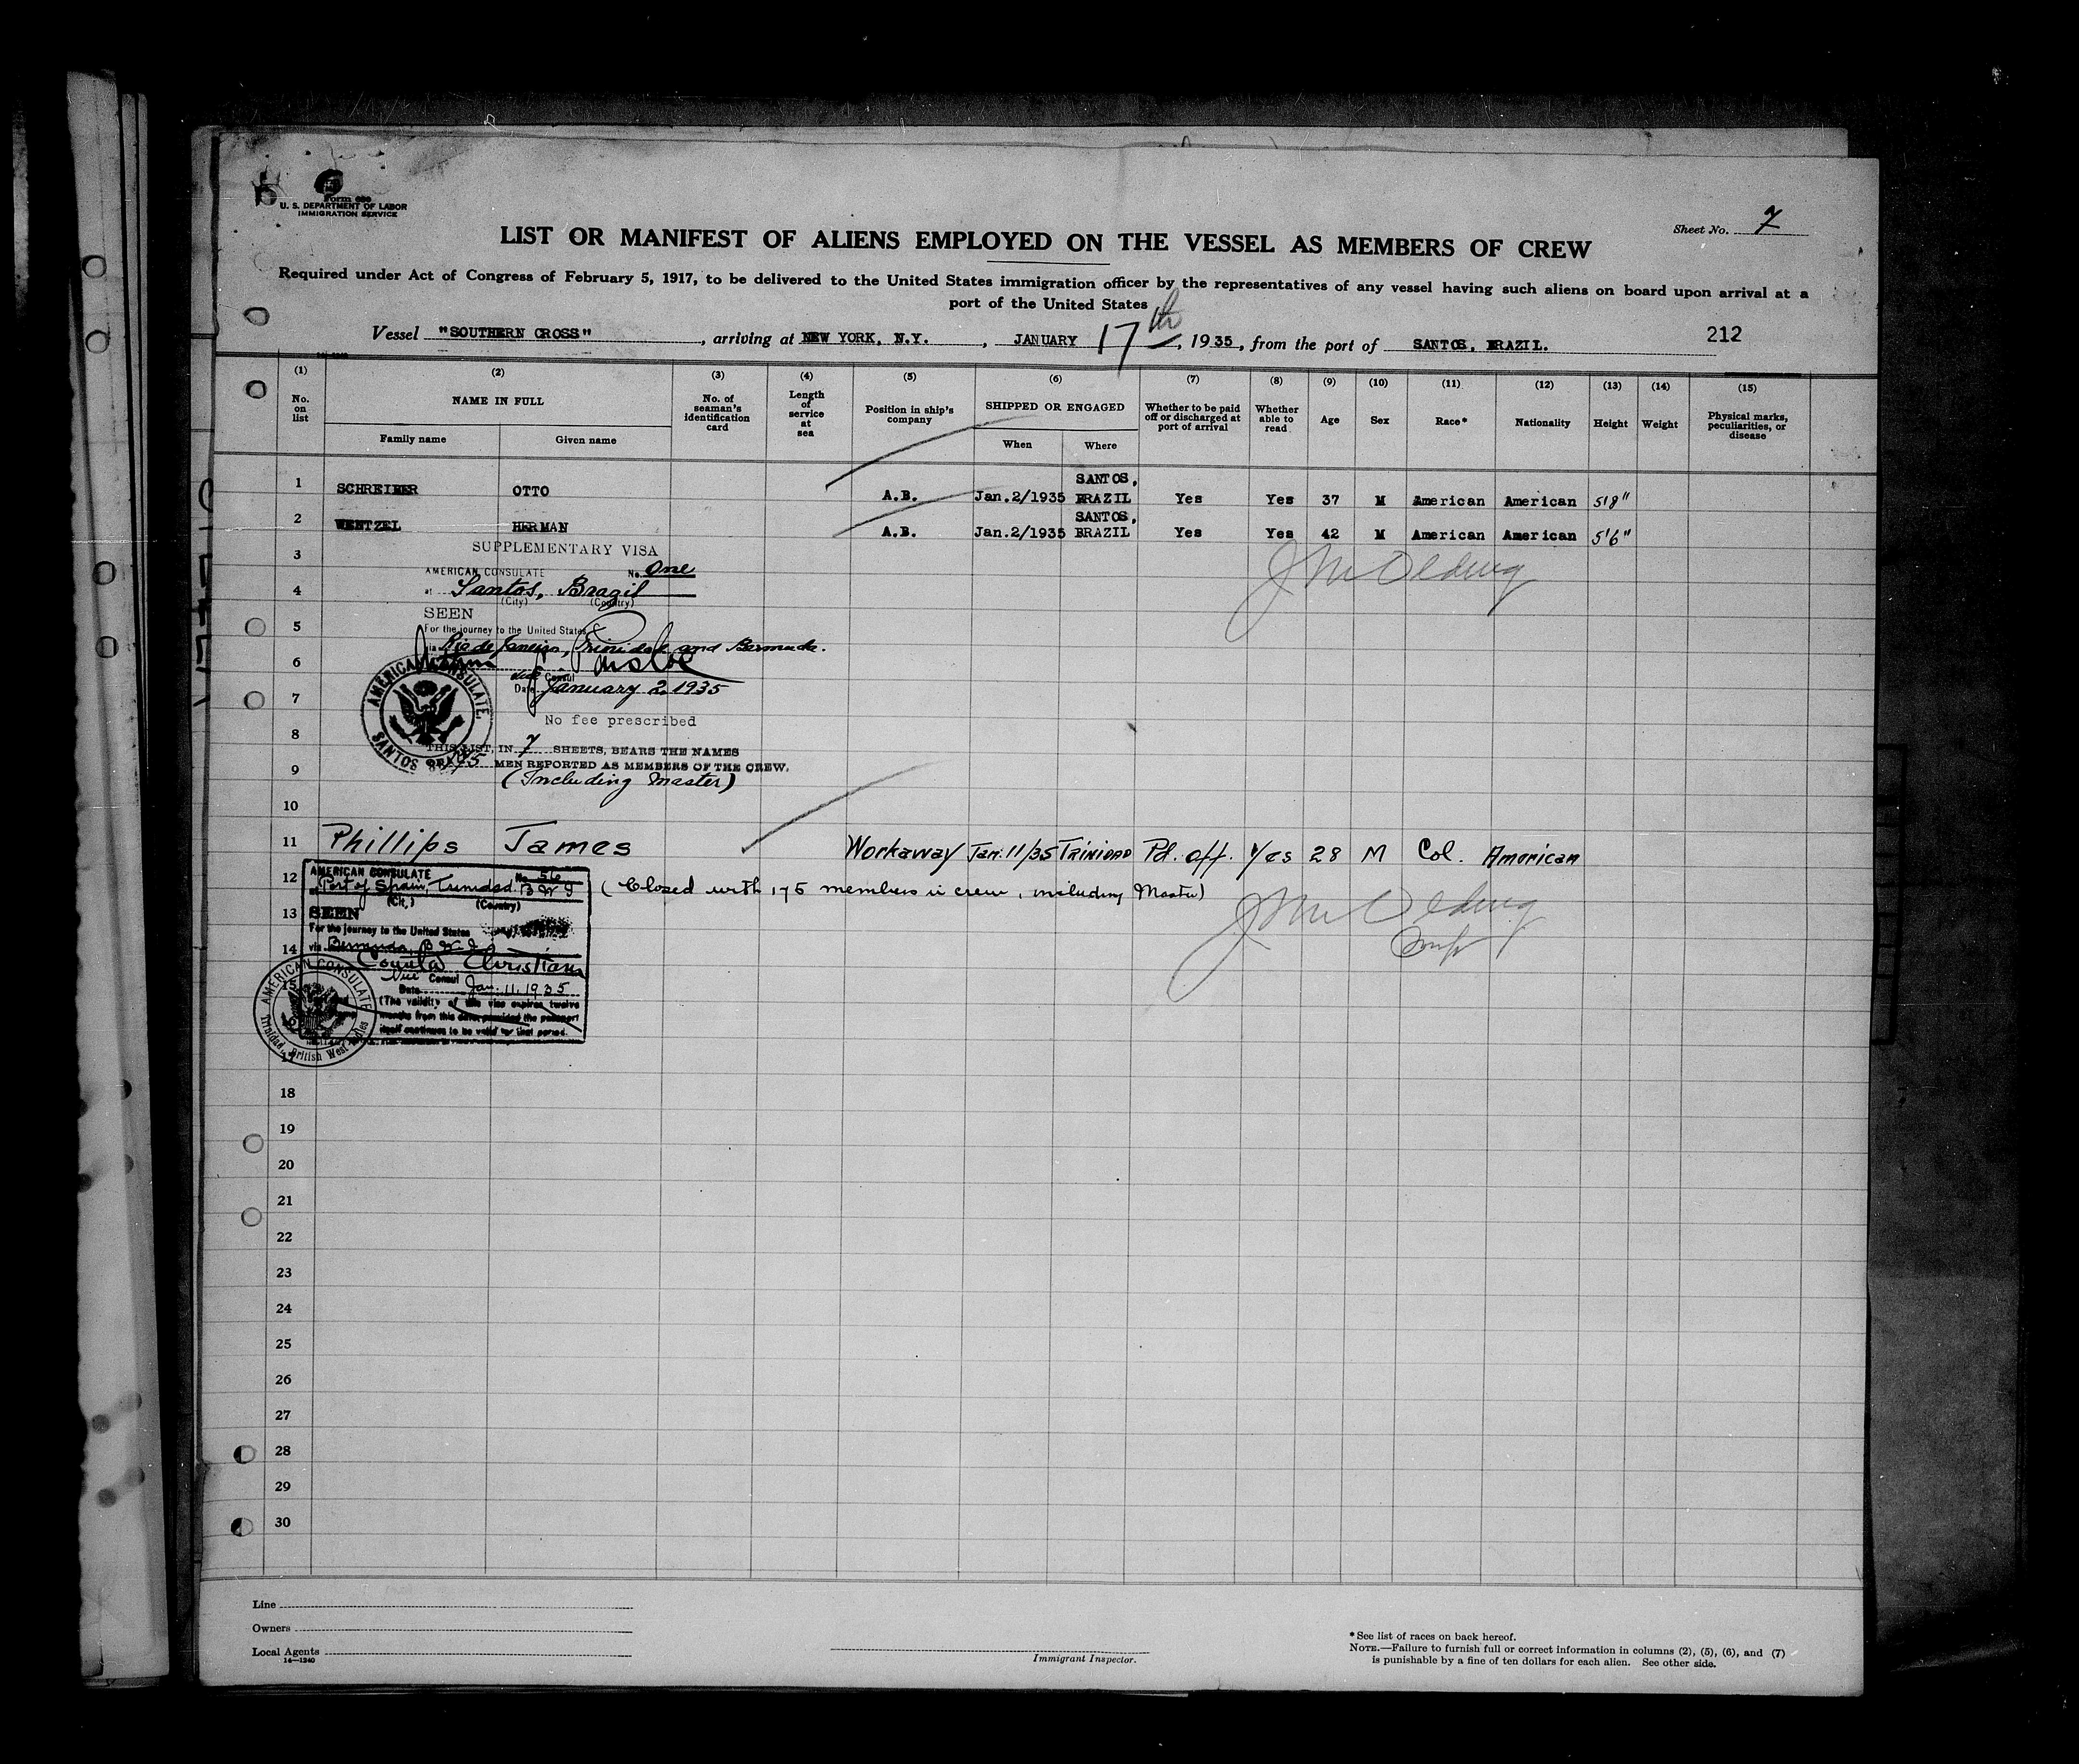 Form 680
U. S. DEPARTMENT OF LABOR
IMMIGRATION SERVICE
Sheet No. 7
LIST OR MANIFEST OF ALIENS EMPLOYED ON THE VESSEL AS MEMBERS OF CREW
Required under Act of Congress of February 5, 1917, to be delivered to the United States immigration officer by the representatives of any vessel having such aliens on board upon arrival at a
port of the United States
Vessel "SOUTHERN CROSS", arriving at NEW YORK, N.Y., JANUARY 17th, 1935, from the port of SANTOS, BRAZIL.
212
(1) (2) (3) (4) (5) (6) (7) (8) (9) (10) (11) (12) (13) (14) (15)
No. on list NAME IN FULL No. of seaman's identification card Length of service at sea Position in ship's company SHIPPED OR ENGAGED Whether to be paid off or discharged at port of arrival Whether able to read Age Sex Race* Nationality Height Weight Physical marks, peculiarities, or disease
Family name Given name When Where
1 SCHREIBER OTTO A.B. Jan.2/1935 SANTOS, BRAZIL Yes Yes 37 M American American 5'8"
2 WENTZEL HERMAN A.B. Jan.2/1935 SANTOS, BRAZIL Yes Yes 42 M American American 5'6"
3 SUPPLEMENTARY VISA
AMERICAN CONSULATE No. One
4 at Santos, Brazil
(City) (Country)
SEEN
5 For the journey to the United States
via Rio de Janeiro, Trinidad and Bermuda.
6
Consul
Date January 2, 1935
7
No fee prescribed
8
THIS LIST, IN 7 SHEETS, BEARS THE NAMES
OF 175 MEN REPORTED AS MEMBERS OF THE CREW.
9 (Including Master)
AMERICAN CONSULATE
SANTOS BRAZIL
10
11 Phillips James Workaway Jan. 11/35 TRINIDAD Pd. off. Yes 28 M Col. American
AMERICAN CONSULATE No. 56
12 at Port of Spain, Trinidad. B W I (Closed with 175 members in crew, including Master)
(City) (Country)
13 SEEN
For the journey to the United States
14 via Bermuda, B W I
Christiam
Vice Consul
15 Date Jan. 11. 1935
(The validity of this visa expires twelve
months from this date, provided the passport
itself continues to be valid for that period.
AMERICAN CONSULATE
Trinidad, British West Indies
17
18
19
20
21
22
23
24
25
26
27
28
29
30
Line
Owners
Local Agents
14—1240
Immigrant Inspector.
* See list of races on back hereof.
NOTE.—Failure to furnish full or correct information in columns (2), (5), (6), and (7)
is punishable by a fine of ten dollars for each alien. See other side.